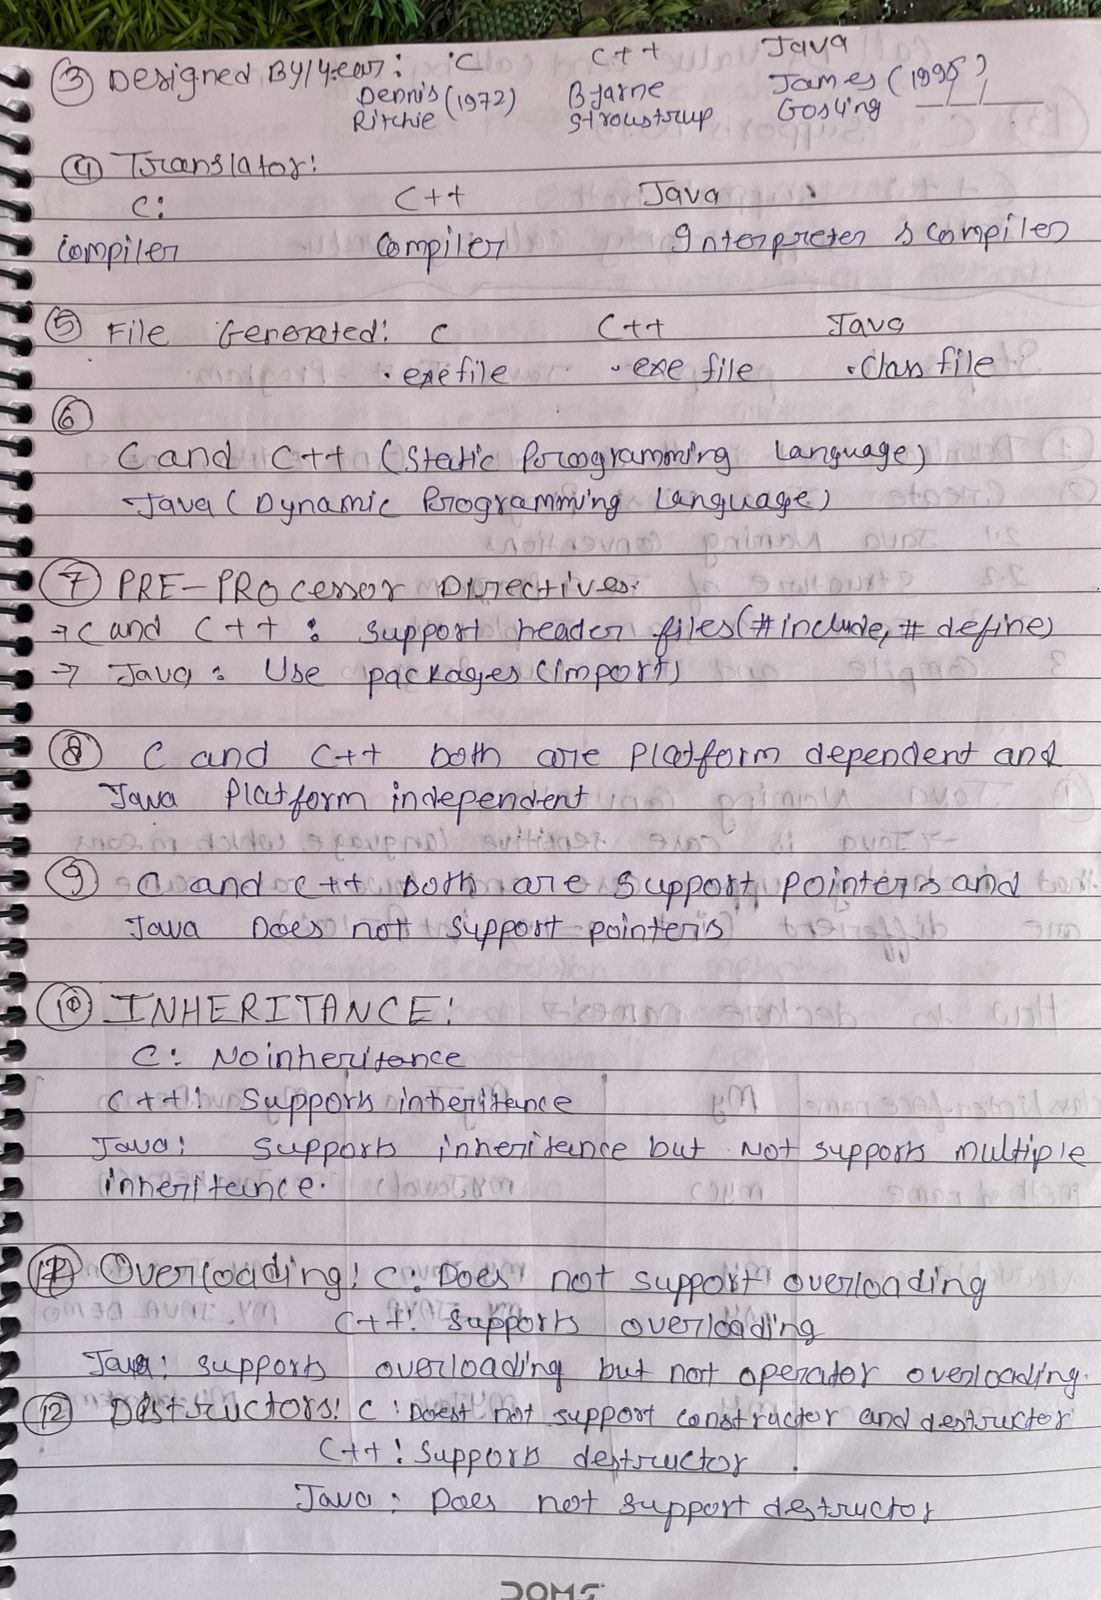 ③ Designed By/year: C C++ Java
Dennis (1972) Bjarne James (1995)
Ritchie Stroustrup Gosling
④ Translator:
C: C++ Java
Compiler Compiler Interpreter & Compiler
⑤ File Generated: C C++ Java
.exe file .exe file .Class file
⑥
C and C++ (Static Programming Language)
Java (Dynamic Programming Language)
⑦ PRE-PROcessor Directives:
→ C and C++ : Support header files (#include, # define)
→ Java : Use packages (import)
⑧ C and C++ both are Platform dependent and
Java Platform independent
⑨ C and C++ both are support pointers and
Java Does not support pointers
⑩ INHERITANCE:
C: No inheritance
C++: Supports inheritance
Java: Supports inheritance but Not supports multiple
inheritance.
Overloading: C: Does not support overloading
C++: Supports overloading
Java: supports overloading but not operator overloading.
⑫ Destructors: C: Doest not support constructor and destructor
C++: Supports destructor
Java: Does not support destructor
DOMS